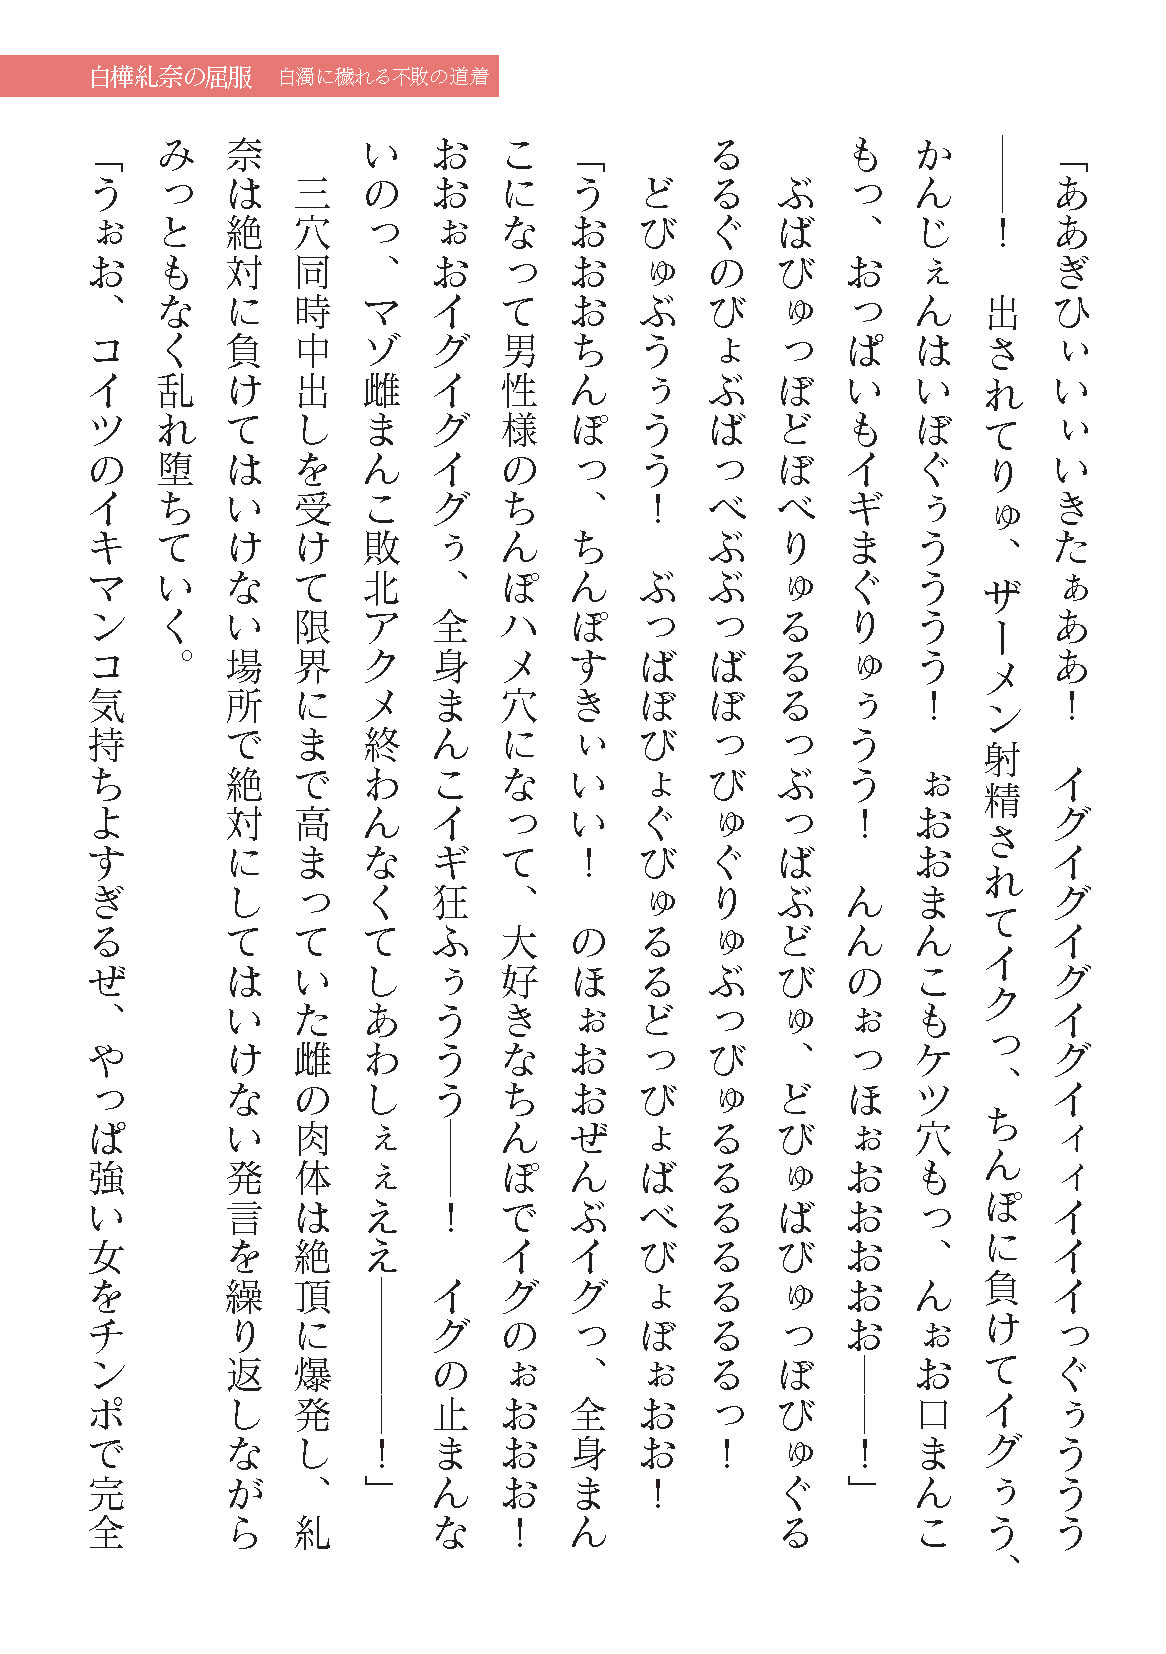 白樺糺奈の屈服　白濁に穢れる不敗の道着
「ああぎひぃいぃいきたぁああ！　イグイグイグイグイィィイイイっぐぅううう
――！　出されてりゅ、ザーメン射精されてイクっ、ちんぽに負けてイグぅう、
かんじぇんはいぼぐぅううう！　ぉおおまんこもケツ穴もっ、んぉお口まんこ
もっ、おっぱいもイギまぐりゅぅうう！　んんのぉっほぉおおおお――！」
　ぶばびゅっぼどぼべりゅるるるっぶっばぶどびゅ、どびゅばびゅっぼびゅぐる
るるぐのびょぶばっべぶぶっばぼっびゅぐりゅぶっびゅるるるるるるるっ！
　どびゅぶうぅうう！　ぶっばぼびょぐびゅるるどっびょばべびょぼぉおお！
「うおおおちんぽっ、ちんぽすきぃいい！　のほぉおおぜんぶイグっ、全身まん
こになって男性様のちんぽハメ穴になって、大好きなちんぽでイグのぉおおお！
おおぉおイグイグイグぅ、全身まんこイギ狂ふぅううう――！　イグの止まんな
いのっ、マゾ雌まんこ敗北アクメ終わんなくてしあわしぇぇええ――――！」
　三穴同時中出しを受けて限界にまで高まっていた雌の肉体は絶頂に爆発し、糺
奈は絶対に負けてはいけない場所で絶対にしてはいけない発言を繰り返しながら
みっともなく乱れ堕ちていく。
「うぉお、コイツのイキマンコ気持ちよすぎるぜ、やっぱ強い女をチンポで完全